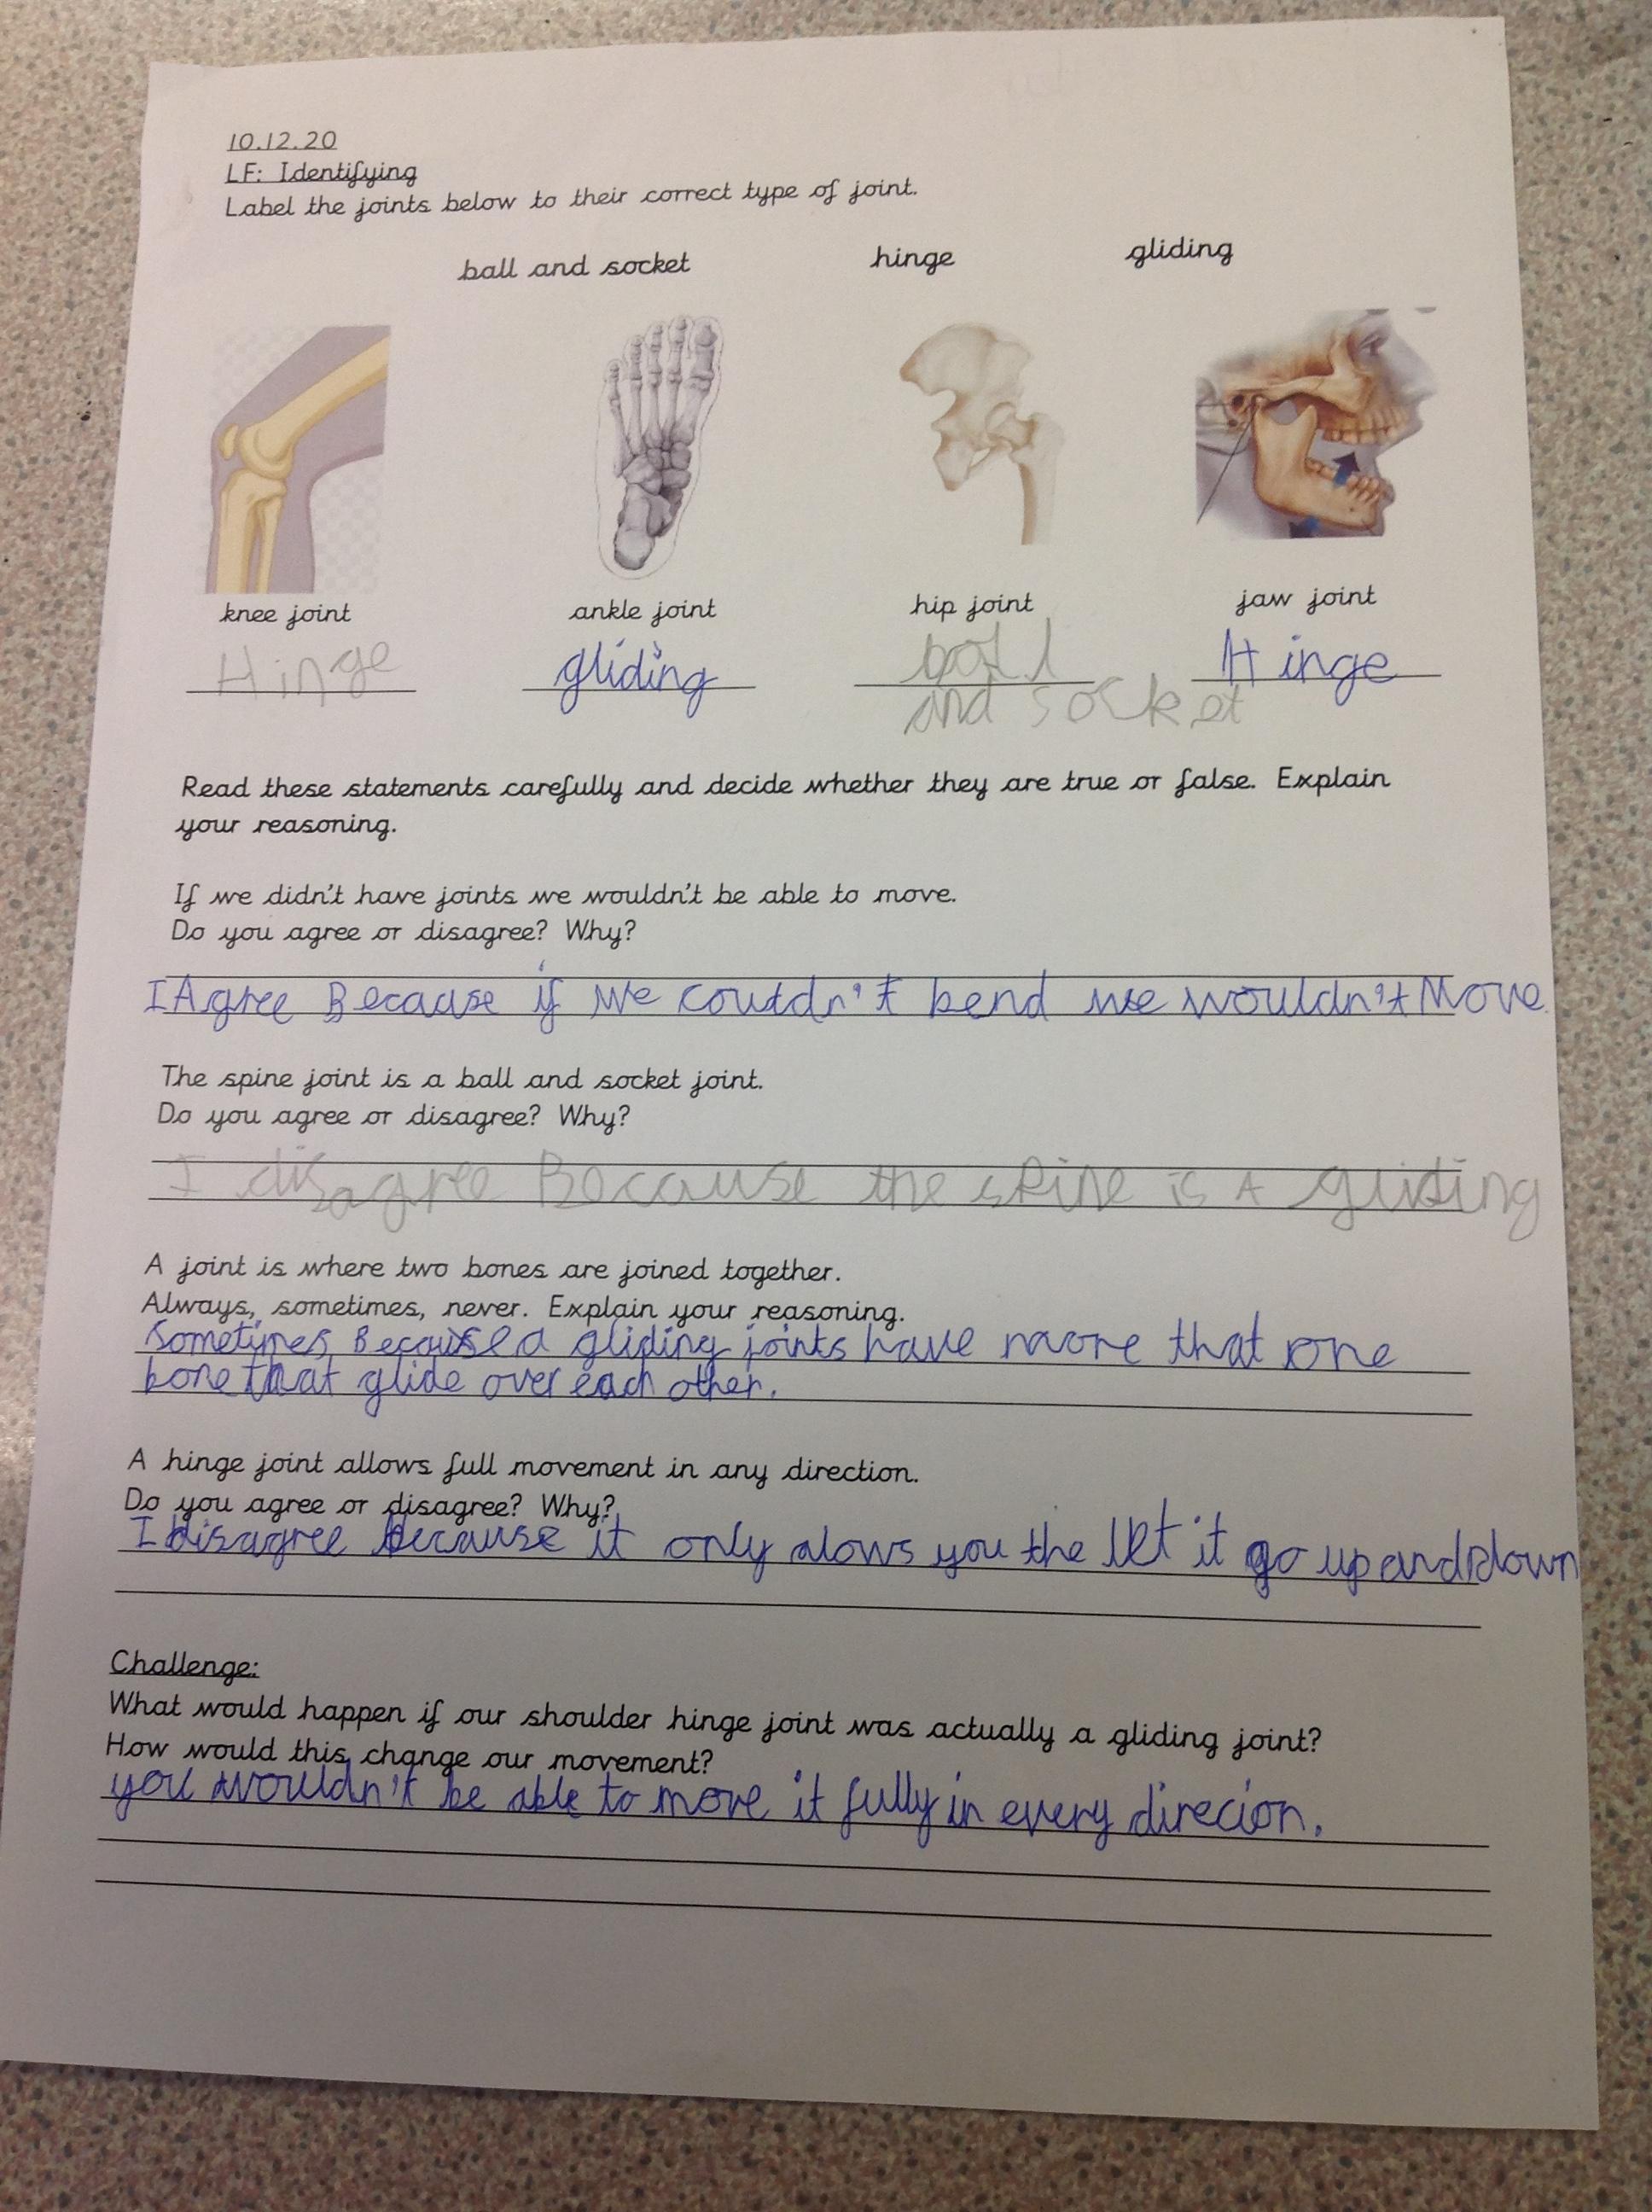 10.12.20
LF: Identifying
Label the joints below to their correct type of joint.
ball and socket hinge gliding
knee joint ankle joint hip joint jaw joint
Hinge gliding ball Hinge
and socket
Read these statements carefully and decide whether they are true or false. Explain
your reasoning.
If we didn't have joints we wouldn't be able to move.
Do you agree or disagree? Why?
I Agree Because if we couldn't bend we wouldn't Move.
The spine joint is a ball and socket joint.
Do you agree or disagree? Why?
I disagree Because the spine is A gliding
A joint is where two bones are joined together.
Always, sometimes, never. Explain your reasoning.
Sometimes Because a gliding joints have more that one
bone that glide over each other.
A hinge joint allows full movement in any direction.
Do you agree or disagree? Why?
I disagree because it only alows you the let it go up and down
Challenge:
What would happen if our shoulder hinge joint was actually a gliding joint?
How would this change our movement?
you wouldn't be able to move it fully in every direcion.